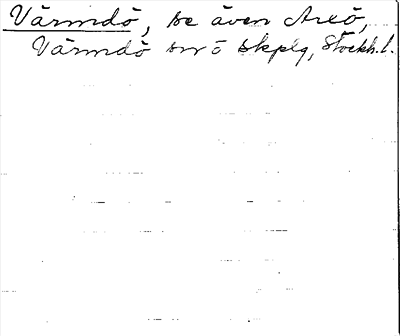 Värmdö, se även Arxö,
Värmdö sn ö skplg, Stockh. l.